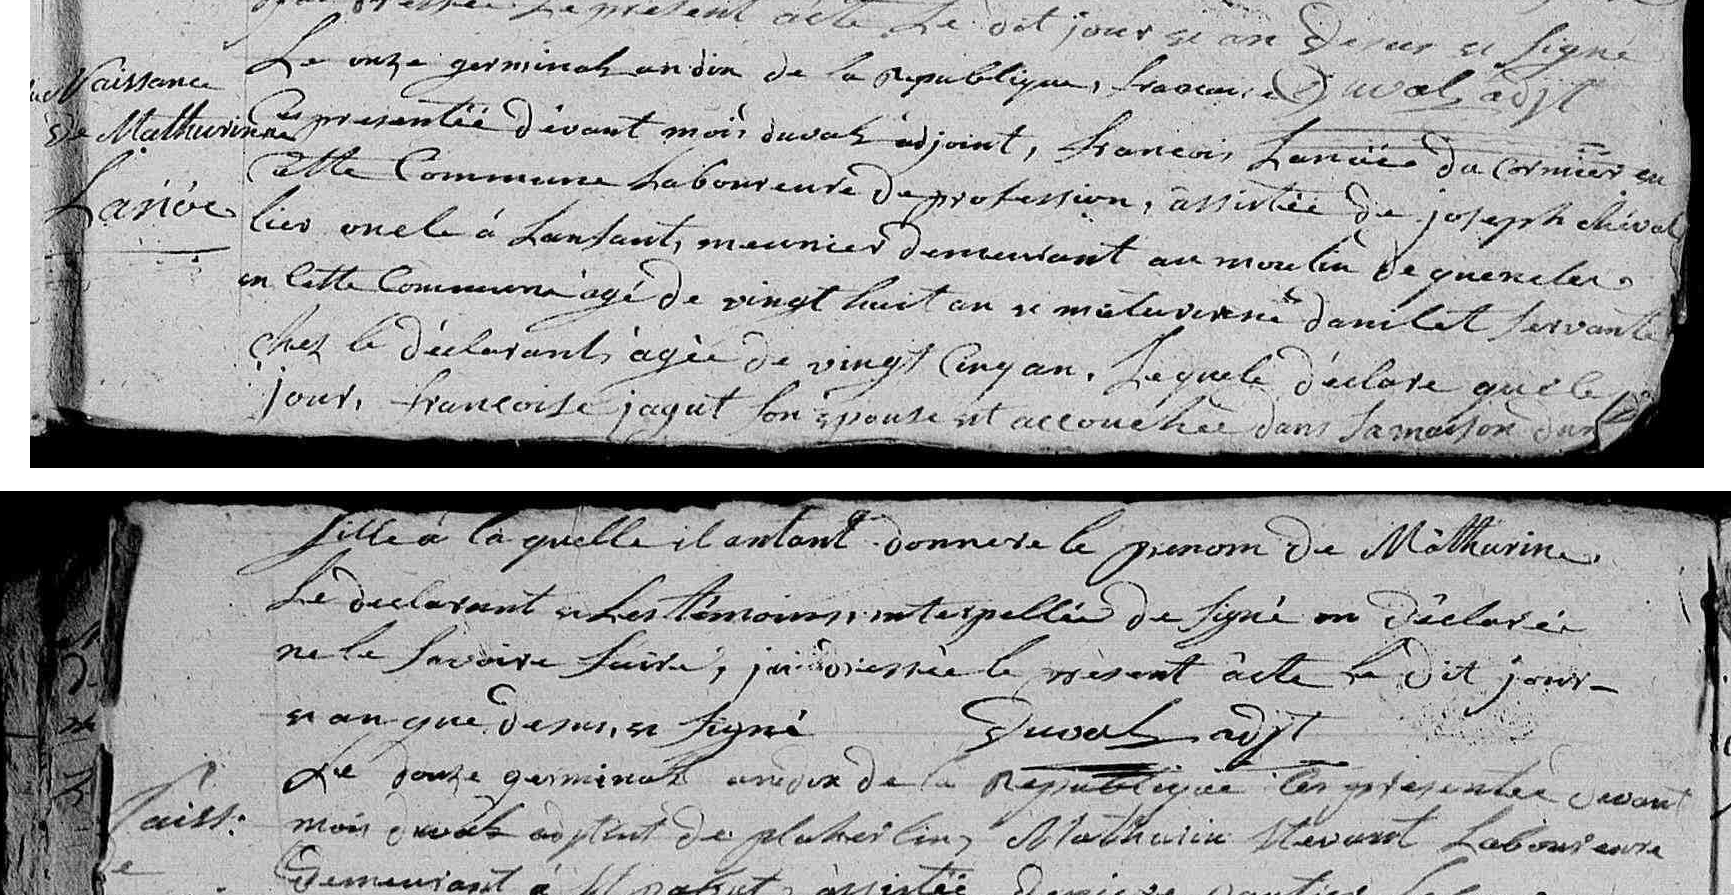 présent acte Le dit jour et an desur et signé
Duval adjt
Naissance
de Mathurinne
Lanoë
Le onze germinal an dix de la republique, francaise
ces presentéé dévant moi duval adjoint, francois Lanoëe du cormier en
cette Commune Laboureure de profession, assistée de joseph chéval
lier oncle á Lanfant, meunier demeurant au moulin de quenelec
en Cette Commune agé de vingt huit an et maturinne danilet servante
chez le déclarant, agée de vingt Cinq an, Lequele déclare que le
jour, francoise jagut son épouse est accouchée dans sa maison dun
fille á la quelle il antant donnere le prenom de Mathurine,
Le declarant et Les témoins, interpellée de signé on déclarée
ne le savoire faire, jai dressée le present acte Le dit jour
et an que desus, et signé Duval adjt
Naiss:
de
Le douze germinal an dix de la Republique ces presentée devant
moi duval adjt de Mathurin Laboureure
demeurant á assistée